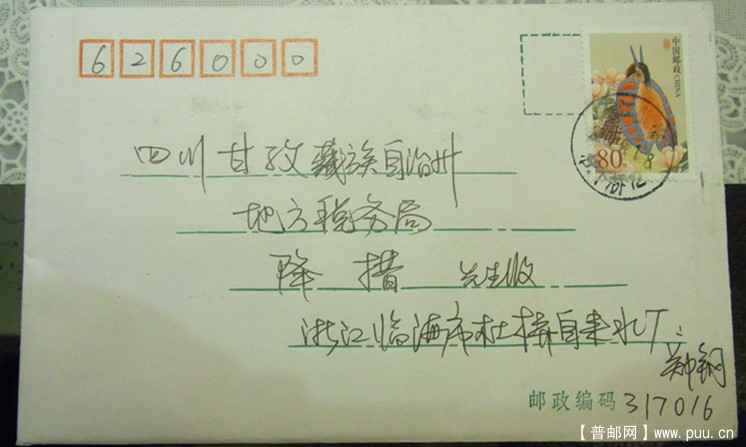 626000
中国邮政 CHINA
80
四川甘孜藏族自治州
地方税务局
降措 先生收
浙江临海市杜桥自来水厂
郑钢
邮政编码 317016
【普邮网】www.puu.cn